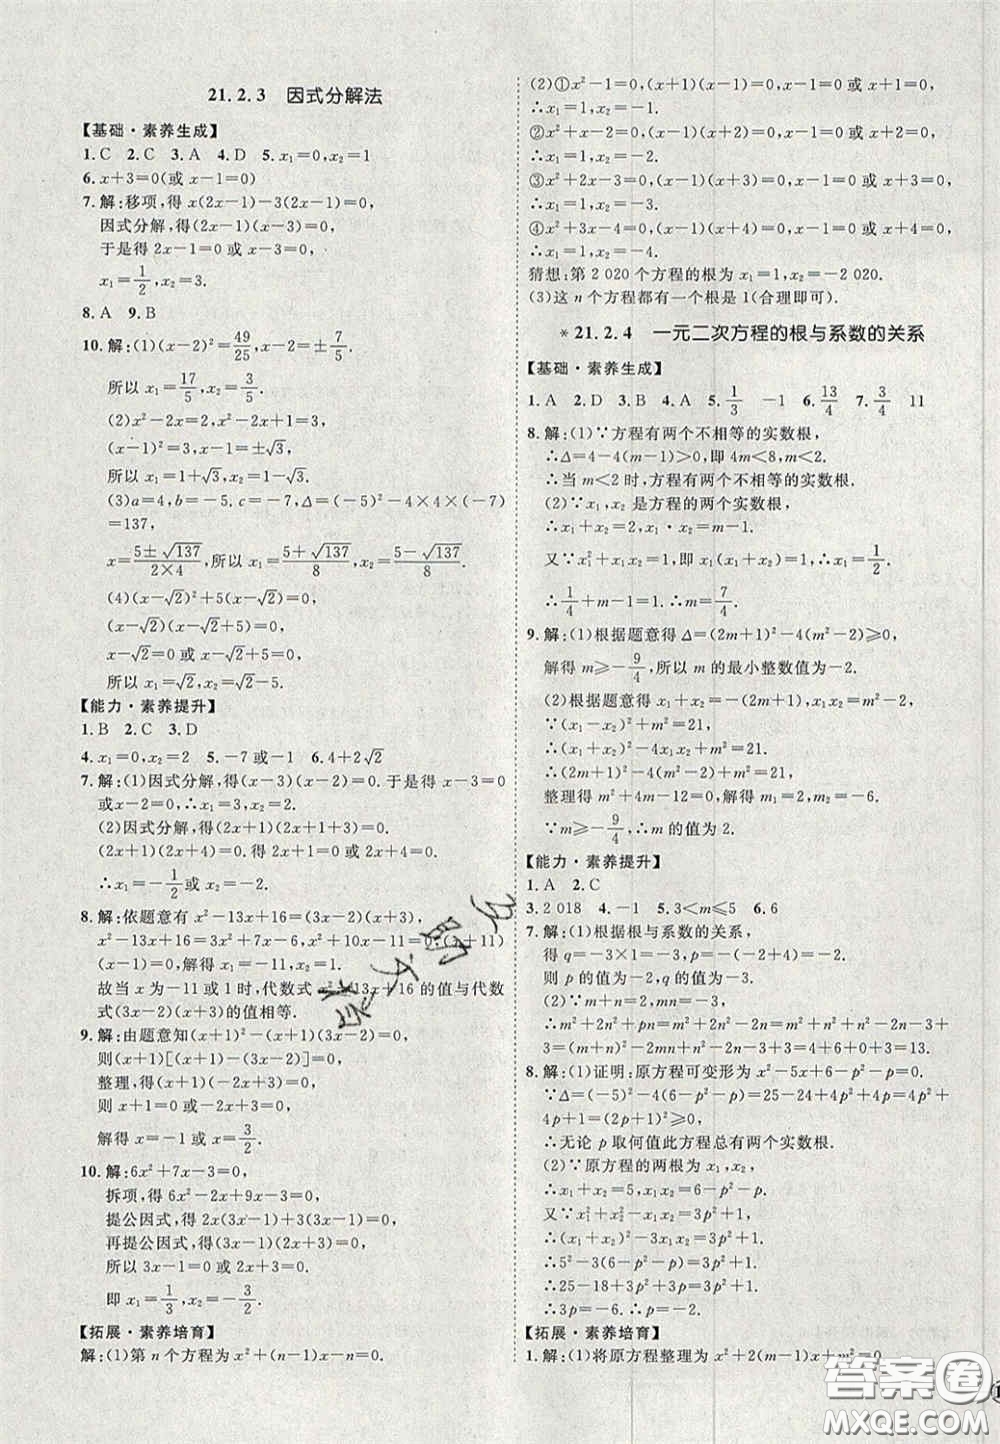 21.2.3 因式分解法
【基础·素养生成】
1.C 2.C 3.A 4.D 5.x₁=0,x₂=1
6.x+3=0(或 x-1=0)
7.解:移项,得 x(2x-1)-3(2x-1)=0,
因式分解,得(2x-1)(x-3)=0,
于是得 2x-1=0 或 x-3=0,
x₁=1/2,x₂=3.
8.A 9.B
10.解:(1)(x-2)²=49/25,x-2=±7/5.
所以 x₁=17/5,x₂=3/5.
(2)x²-2x=2,x²-2x+1=2+1,
(x-1)²=3,x-1=±√3,
所以 x₁=1+√3,x₂=1-√3.
(3)a=4,b=-5,c=-7,Δ=(-5)²-4×4×(-7)
=137,
x=(5±√137)/(2×4),所以 x₁=(5+√137)/8,x₂=(5-√137)/8.
(4)(x-√2)²+5(x-√2)=0,
(x-√2)(x-√2+5)=0,
x-√2=0 或 x-√2+5=0,
所以 x₁=√2,x₂=√2-5.
【能力·素养提升】
1.B 2.C 3.D
4.x₁=0,x₂=2 5.-7 或-1 6.4+2√2
7.解:(1)因式分解,得(x-3)(x-2)=0.于是得 x-3=0
或 x-2=0,∴x₁=3,x₂=2.
(2)因式分解,得(2x+1)(2x+1+3)=0.
(2x+1)(2x+4)=0,2x+1=0 或 2x+4=0,
∴x₁=-1/2 或 x₂=-2.
8.解:依题意有 x²-13x+16=(3x-2)(x+3),
x²-13x+16=3x²+7x-6,x²+10x-11=0,(x+11)
(x-1)=0,解得 x₁=-11,x₂=1.
故当 x 为-11 或 1 时,代数式 x²-13x+16 的值与代数
式(3x-2)(x+3)的值相等.
9.解:由题意知(x+1)²-(x+1)(3x-2)=0,
则(x+1)[(x+1)-(3x-2)]=0,
整理,得(x+1)(-2x+3)=0,
则 x+1=0 或-2x+3=0,
解得 x=-1 或 x=3/2.
10.解:6x²+7x-3=0,
拆项,得 6x²-2x+9x-3=0,
提公因式,得 2x(3x-1)+3(3x-1)=0,
再提公因式,得(3x-1)(2x+3)=0,
所以 3x-1=0 或 2x+3=0,
即 x₁=1/3,x₂=-3/2.
【拓展·素养培育】
解:(1)第 n 个方程为 x²+(n-1)x-n=0.
(2)①x²-1=0,(x+1)(x-1)=0,x+1=0 或 x-1=0,
∴x₁=1,x₂=-1.
②x²+x-2=0,(x+2)(x-1)=0,x+2=0 或 x-1=0,
∴x₁=1,x₂=-2.
③x²+2x-3=0,(x+3)(x-1)=0,x+3=0 或 x-1=0,
∴x₁=1,x₂=-3.
④x²+3x-4=0,(x+4)(x-1)=0,x+4=0 或 x-1=0,
∴x₁=1,x₂=-4.
猜想:第 2 020 个方程的根为 x₁=1,x₂=-2 020.
(3)这 n 个方程都有一个根是 1(合理即可).
*21.2.4 一元二次方程的根与系数的关系
【基础·素养生成】
1.A 2.D 3.B 4.A 5.1/3 -1 6.13/4 7.3/4 11
8.解:(1)∵方程有两个不相等的实数根,
∴Δ=4-4(m-1)>0,即 4m<8,m<2,
∴当 m<2 时,方程有两个不相等的实数根.
(2)∵x₁,x₂ 是方程的两个实数根,
∴x₁+x₂=2,x₁·x₂=m-1.
又∵x₁²+x₁x₂=1,即 x₁(x₁+x₂)=1,∴x₁=1/2.
∴1/4+m-1=0.∴m=7/4.
9.解:(1)根据题意得 Δ=(2m+1)²-4(m²-2)≥0,
解得 m≥-9/4,所以 m 的最小整数值为-2.
(2)根据题意得 x₁+x₂=-(2m+1),x₁x₂=m²-2,
∵(x₁-x₂)²+m²=21,
∴(x₁+x₂)²-4x₁x₂+m²=21,
∴(2m+1)²-4(m²-2)+m²=21,
整理得 m²+4m-12=0,解得 m₁=2,m₂=-6.
∵m≥-9/4,∴m 的值为 2.
【能力·素养提升】
1.A 2.C
3.2 018 4.-1 5.3<m≤5 6.6
7.解:(1)根据根与系数的关系,
得 q=-3×1=-3,-p=-3+1=-2,
则 p 的值为-2,q 的值为-3.
(2)∵m+n=2,
∴m²+2mn+n²+pmn+3=m²+2mn+n²-2mn
+3=(m+n)²-2mn+3=4+6+3=13.
8.解:(1)证明:原方程可变形为 x²-5x+6-p²-p=0.
∵Δ=(-5)²-4(6-p²-p)=25-24+4p²+4p=4p²+
4p+1=(2p+1)²≥0,
∴无论 p 取何值此方程总有两个实数根.
(2)∵原方程的两根为 x₁,x₂,
∴x₁+x₂=5,x₁x₂=6-p²-p.
又∵x₁²+x₂²-x₁x₂=3p²+1,
∴(x₁+x₂)²-3x₁x₂=3p²+1,
∴5²-3(6-p²-p)=3p²+1,
∴25-18+3p²+3p=3p²+1,
∴3p=-6,∴p=-2.
【拓展·素养培育】
1.解:(1)将原方程整理为 x²+2(m-1)x+m²=0,
答案圈
MXQE.COM